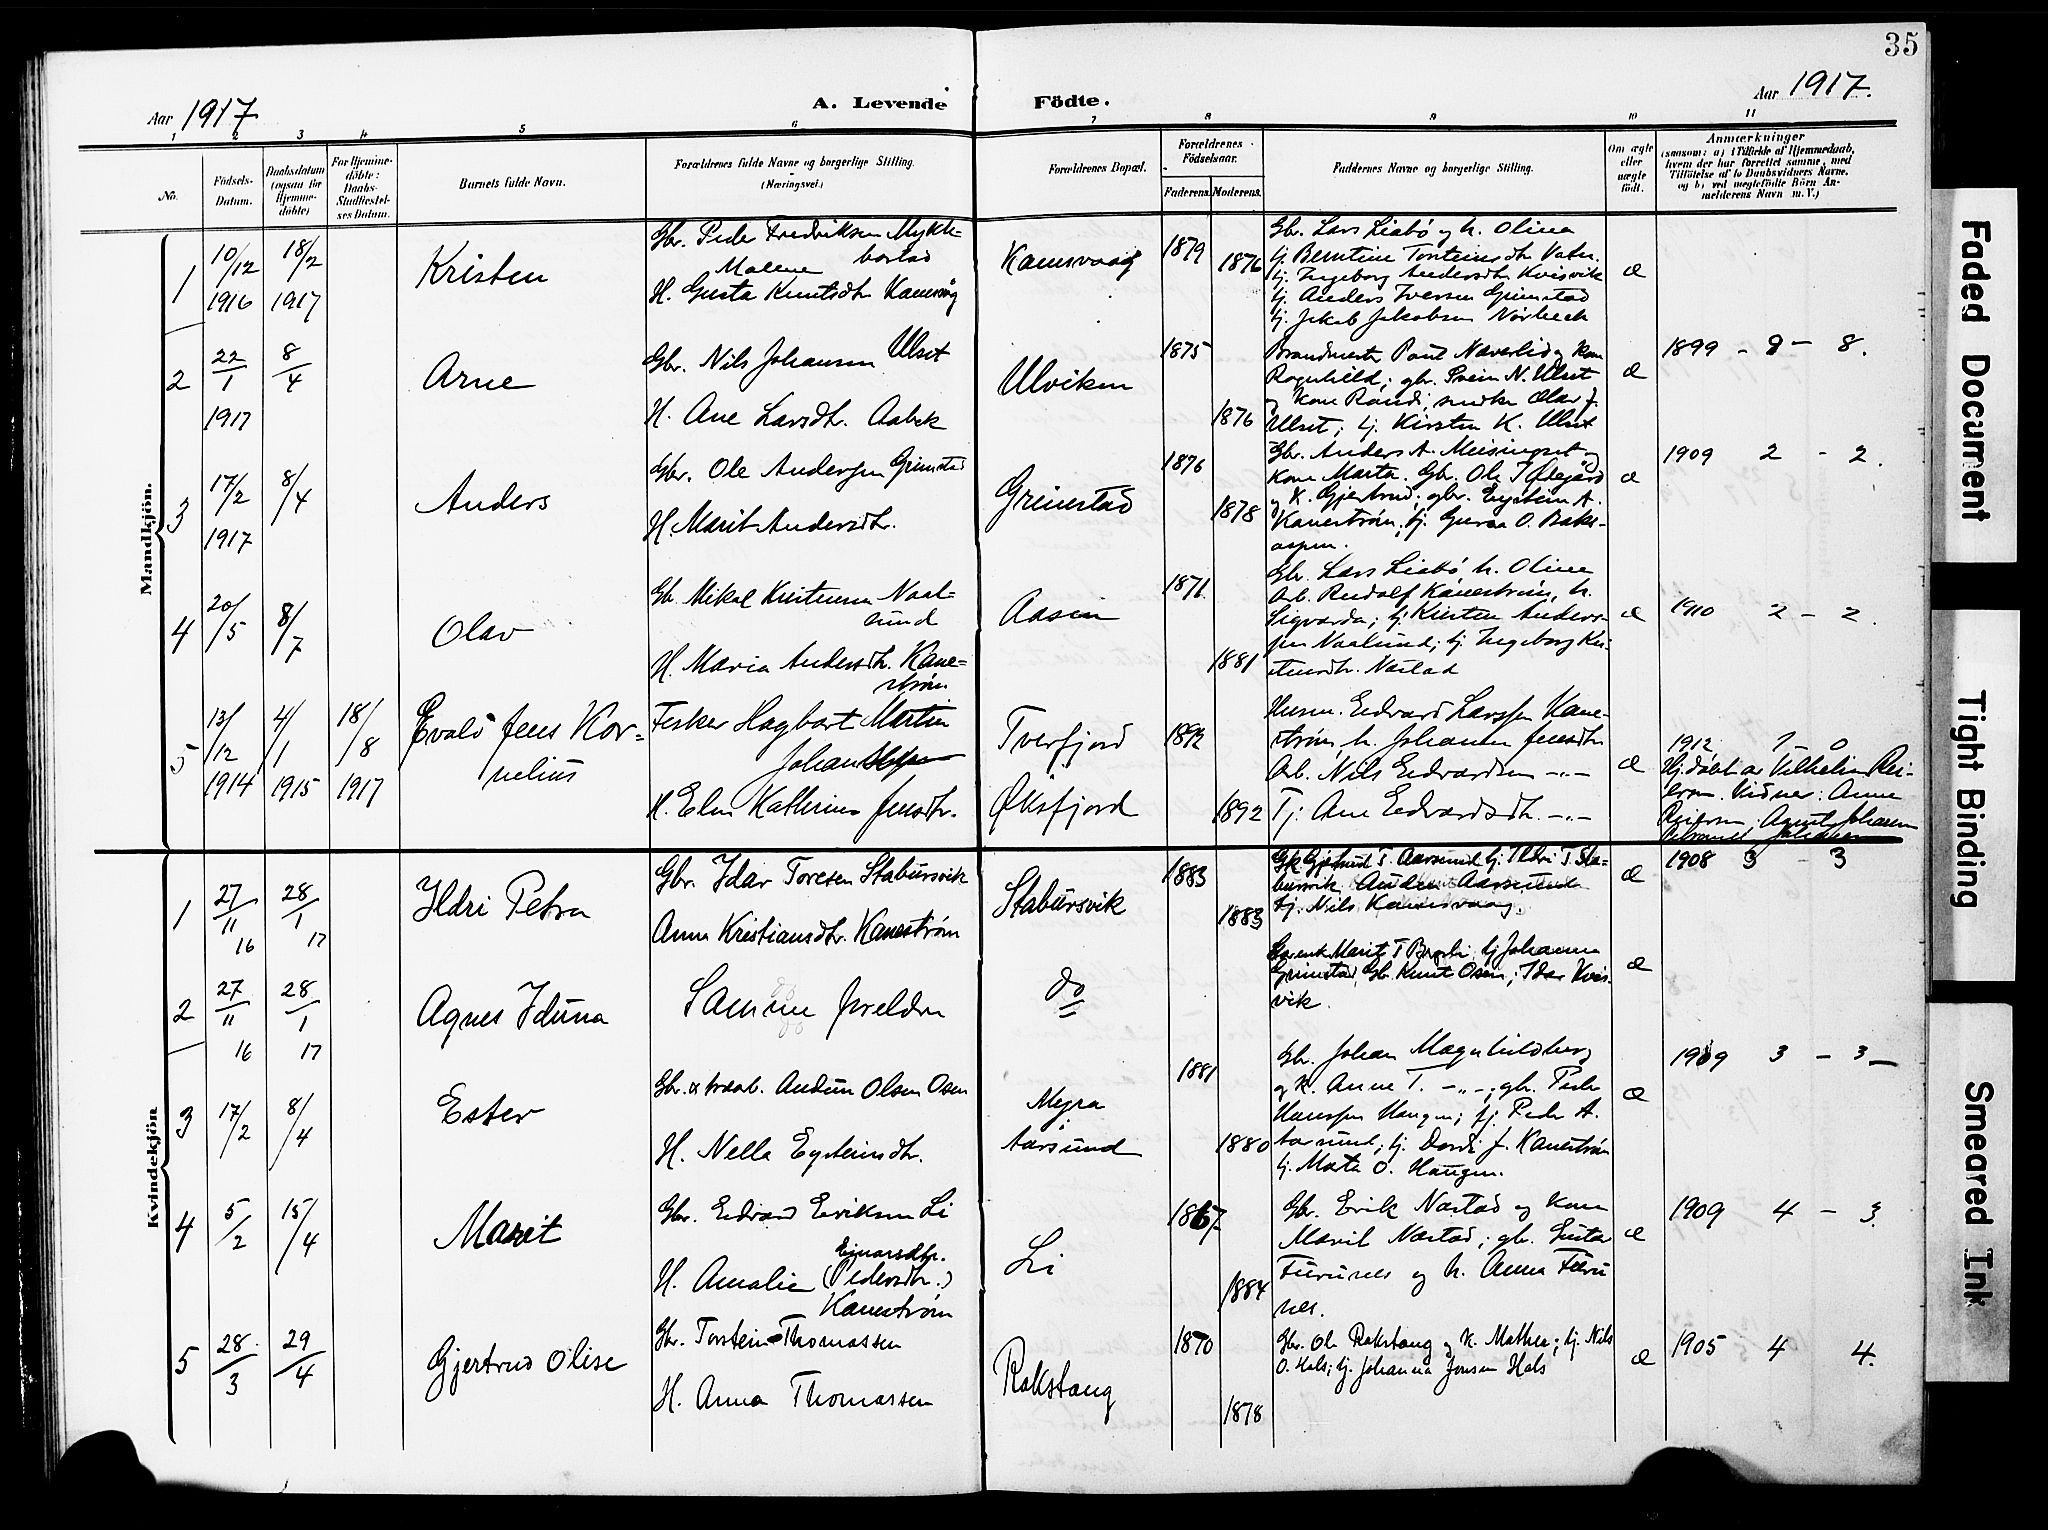 35
Aar 1917
A. Levende
Födte.
Aar 1917.
1 2 3 4 5 6 7 8 9 10 11
No.
Födsels-Datum.
Daabsdatum (ogsaa for Hjemme-döbte)
For Hjemme-döbte: Daabs-Stadfæstel-ses Datum.
Barnets fulde Navn.
Forældrenes fulde Navne og borgerlige Stilling. (Næringsvei.)
Forældrenes Bopæl.
Forældrenes Födselsaar.
Faderens. Moderens.
Faddernes Navne og borgerlige Stilling.
Om ægte eller uægte födt.
Anmærkninger
(saasom: a) i Tilfælde af Hjemmedaab, hvem der har forrettet samme, med Tilföielse af to Daabsvidners Navne, og b) ved uægtefödte Börn An-melderens Navn m. V.)
Mandkjön.
1
10/12 1916
18/2 1917
Kristen
Gbr. Peder Fredriksen Mykle-
bostad
Malene
H. Gusta Knutsdtr. Kanesvåg
Kanesvaag
1879
1876
Gbr. Lars Liabö og h. Olina
tj. Berntine Torsteinsdtr. Vaten.
tj. Ingeborg Andersdtr. Kvisvik
tj. Anders Iversen Grimstad
tj. Jakob Jakobsen Norbeck
æ
2
22/1 1917
8/4
Arne
Gbr. Nils Johansen Ulset
H. Ane Larsdtr. Aabek
Ulviken
1875
1876
Brandmester Paul Næverlid og kone
Ragnhild; gbr. Svein N. Ulset
og kone Randi, smeden Olav J.
Ulset; tj. Kirsten K. Ulset
æ
1899 - 9 - 8.
3
17/2 1917
8/4
Anders
Gbr. Ole Andersen Grimstad
H. Marit Andersdtr.
Grimstad
1876
1878
Gbr. Anders A. Meisingset og
kone Marta. Gbr. Ole T Ødegård
og K. Gjertrud; gbr. Eystein A.
Kanestrøm; tj. Guraa O. Bake-
aspen.
æ
1909 2 - 2.
4
20/5
8/7
Olav
Gb. Mikal Kristensen Naal-
sund
H. Maria Andersdtr. Kane-
strøm
Aasen
1871
1881
Gbr. Lars Liabö h. Olina
Arb. Rudolf Kanestrøm, h.
Sigvarda; tj. Kirsten Anders-
sen Naalsund; tj. Ingeborg Kri-
stensdtr. Næstad
æ
1910 2 - 2.
5
13/12 1914
4/1 1915
18/8 1917
Evald Jens Kor-
nelius
Fisker Hagbart Martin
Johansen
H. Elen Kathrine Jensdtr.
Tverfjord
Øksfjord
1892
1892
Husm. Edvard Larssen Kane-
strøm h. Johanna Jensdtr.
Arb. Nils Edvardsen -"-
Tj. Ane Edvardsdtr. -"-
æ
1912 1 - 0
Hj.døbt av Vilhelm Rei-
ersen. Vidner: Anne
Reiersen. Agnete Johansen
Kvindekjön.
1
27/11 16
28/1 17
Ildri Petra
Gbr. Idar Toresen Stabursvik
Anna Kristiansdtr. Kanestrøm
Stabursvik
1883
1883
Gk Gjertrud T. Aarsund tj. Ildri T. Sta-
bursvik, Audun Aarsund
tj. Nils Kanesvaag.
æ
1908 3 - 3
2
27/11 16
28/1 17
Agnes Iduna
Samme foreldre
do
Marit T
tj Johanna
Grimstad, Gb. Knut Osen; Idar Kvis-
vik.
æ
3
17/2
8/4
Ester
Gbr. & træarb. Audun Olsen Osen
H. Nella Eysteinsdtr.
Myra
Aarsund
1881
1880
Gbr. Johan Magnhildberg
og K. Anne T. -"-; gbr. Peder
Hanssen Haugen; tj. Peder A.
Aarsund; tj. Dordi J. Kanestrøm
tj. Marta O. Haugen.
æ
1909 3 - 3
4
5/2
15/4
Marit
Gbr. Edvard Eriksen Li
Ejnarsdtr.
H. Amalie (Pedersdtr.)
Kanestrøm
Li
1867
1884
Gbr. Erik Næstad og kone
Marit Næstad; gbr. Gustav
Furunes og h. Anna Furu
nes.
æ
1909 4 - 3
5
28/3
29/4
Gjertrud Olise
Gbr. Torstein Thomassen
H. Anna Thomassen
Rakstang
1870
1878
Gbr. Ole Rakstang og K. Mathea; tj. Nils
O. Hals; tj. Johanna Jonsen Hals
æ
1905 4 4.
Faded Document
Tight Binding
Smeared Ink